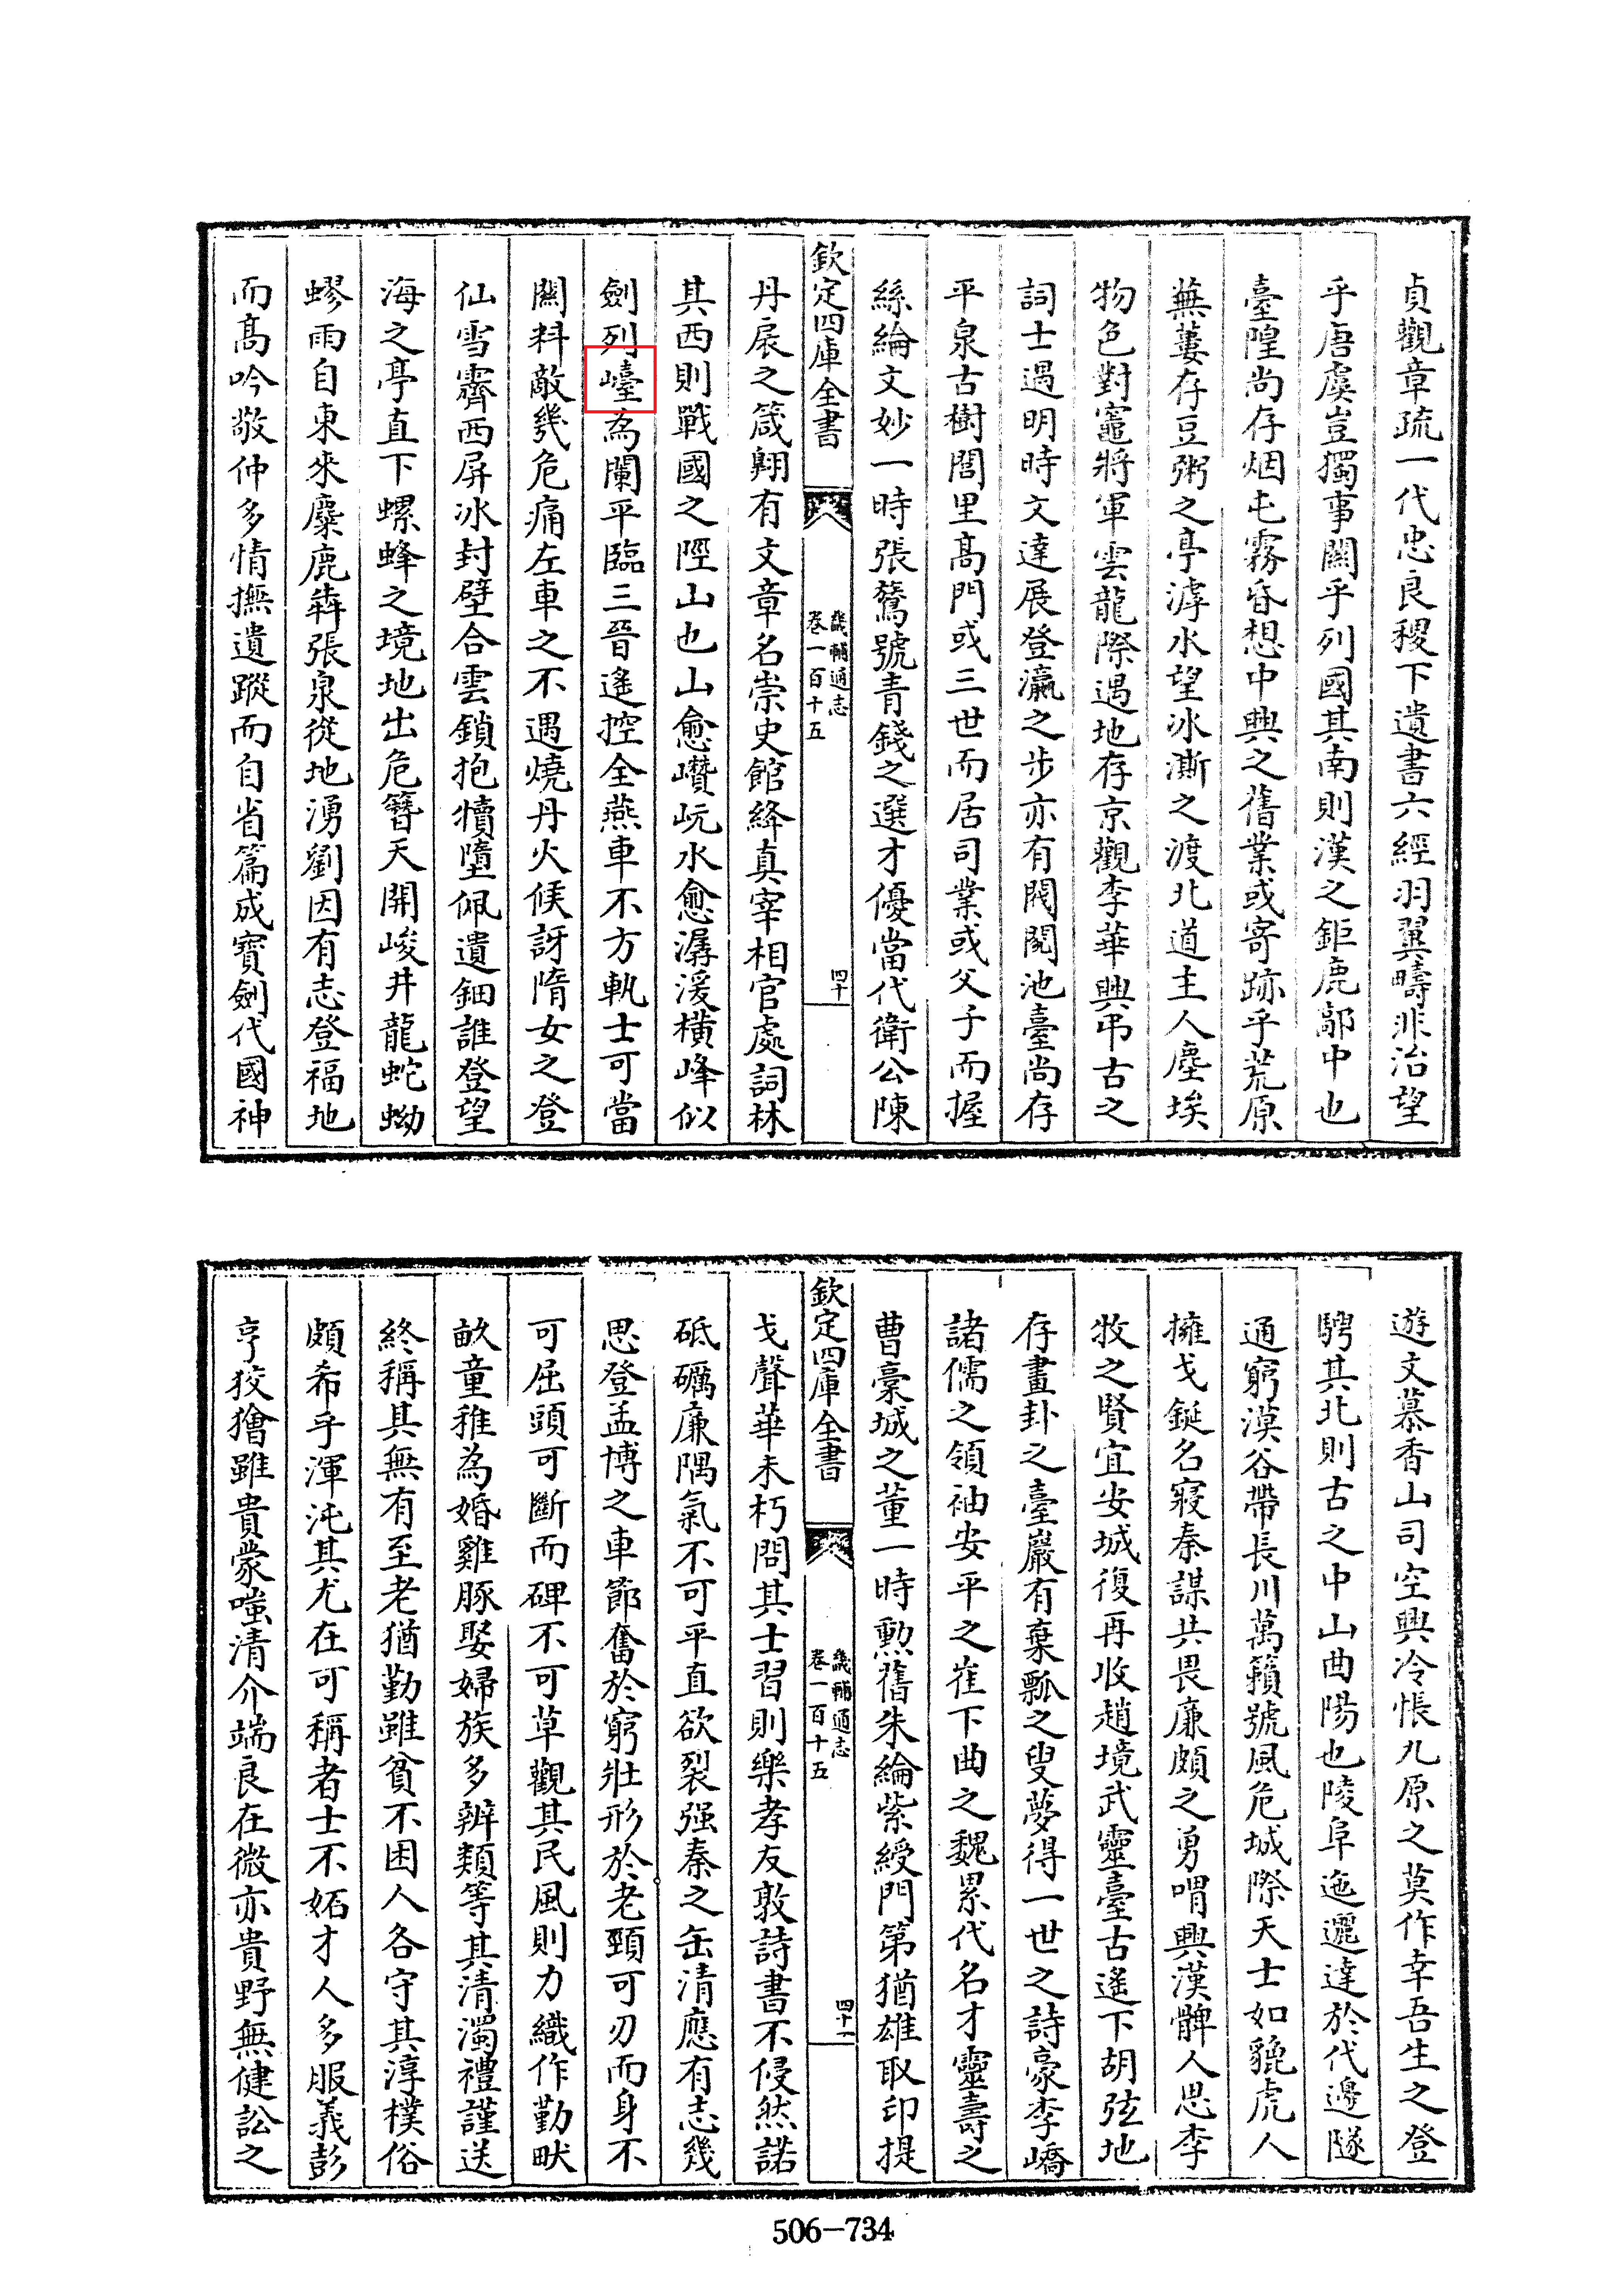 貞觀章疏一代忠良稷下遺書六經羽翼疇非治望
乎唐虞豈獨事關乎列國其南則漢之鉅鹿鄗中也
臺隍尚存烟屯霧昏想中興之舊業或寄跡乎荒原
蕪蔞存豆粥之亭滹水望冰澌之渡北道主人塵埃
物色對竈將軍雲龍際遇地存京觀李華興弔古之
詞士遇明時文達展登瀛之步亦有閥閱池臺尚存
平泉古樹閭里髙門或三世而居司業或父子而握
絲綸文妙一時張鷟號青錢之選才優當代衛公陳
欽定四庫全書
畿輔通志
卷一百十五
四十
丹扆之箴翺有文章名崇史館絳真宰相官處詞林
其西則戰國之陘山也山愈巑岏水愈潺湲橫峰似
劍列⿰山臺為闌平臨三晉遙控全燕車不方軌士可當
關料敵㡬危痛左車之不遇燒丹火候訝隋女之登
仙雪霽西屏冰封壁合雲鎖抱犢墮佩遺鈿誰登望
海之亭直下螺蜂之境地出危簪天開峻井龍蛇蚴
蟉雨自東來麋鹿犇張泉從地湧劉因有志登福地
而髙吟敬仲多情撫遺蹤而自省篇成寳劍代國神
遊文慕香山司空興冷悵九原之莫作幸吾生之登
騁其北則古之中山曲陽也陵阜迤邐達於代邊隧
通窮漠谷帶長川萬籟號風危城際天士如貔虎人
擁戈鋋名寢秦謀共畏廉頗之勇喟興漢髀人思李
牧之賢宜安城復再收趙境武靈臺古遙下胡弦地
存畫卦之臺巖有棄瓢之叟夢得一世之詩豪李嶠
諸儒之領袖安平之崔下曲之魏累代名才靈壽之
曹槀城之董一時勲舊朱綸紫綬門第猶雄取印提
欽定四庫全書
畿輔通志
卷一百十五
四十一
戈聲華未朽問其士習則樂孝友敦詩書不侵然諾
砥礪廉隅氣不可平直欲裂强秦之缶清應有志幾
思登孟博之車節奮於窮壯形於老頸可刃而身不
可屈頭可斷而碑不可草觀其民風則力織作勤畎
畝童稚為婚雞豚娶婦族多辨類等其清濁禮謹送
終稱其無有至老猶勤雖貧不困人各守其淳樸俗
頗希乎渾沌其尤在可稱者士不妬才人多服義彭
亨狡獪雖貴蒙嗤清介端良在微亦貴野無健訟之
506—734